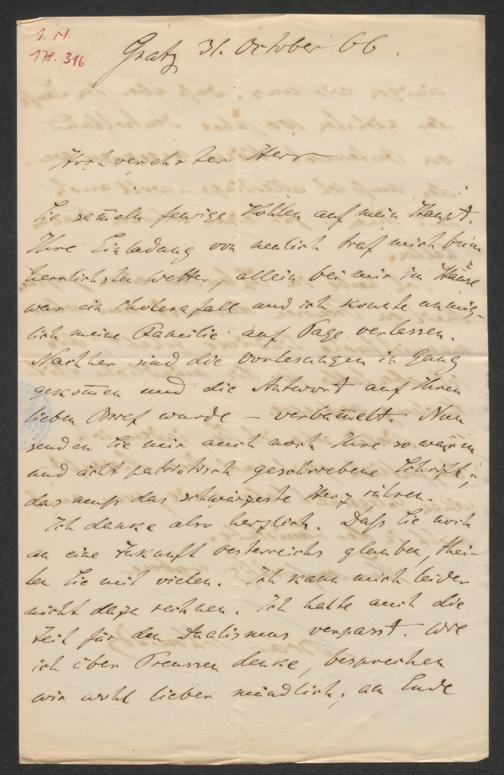 J. N.
178.316
Gratz 31. October 66.
Hochverehrter Herr
Sie sam̅eln feurige Kohlen auf mein Haupt.
Ihre Einladung von neulich traf mich beim
herrlichsten Wetter, allein bei mir im Hause
war ein Cholerafall und ich konnte unmög-
lich meine Familie auf Tage verlassen.
Nachher sind die Vorlesungen in Gang
gekom̅en und die Antwort auf Ihren
lieben Brief wurde – verbum̅elt. Nun
senden Sie mir auch noch Ihre so warm
und ächt patriotisch geschriebene Schrift,
das muss das schwärzeste Herz rühren.
Ich danke also herzlich. Daß Sie noch
an eine Zukunft Oesterreichs glauben, thei-
len Sie mit vielen. Ich kann mich leider
nicht dazu rechnen. Ich halte auch die
Zeit für den Dualismus verpasst. Wie
ich über Preussen denke, besprechen
wir wohl lieber mündlich, am Ende